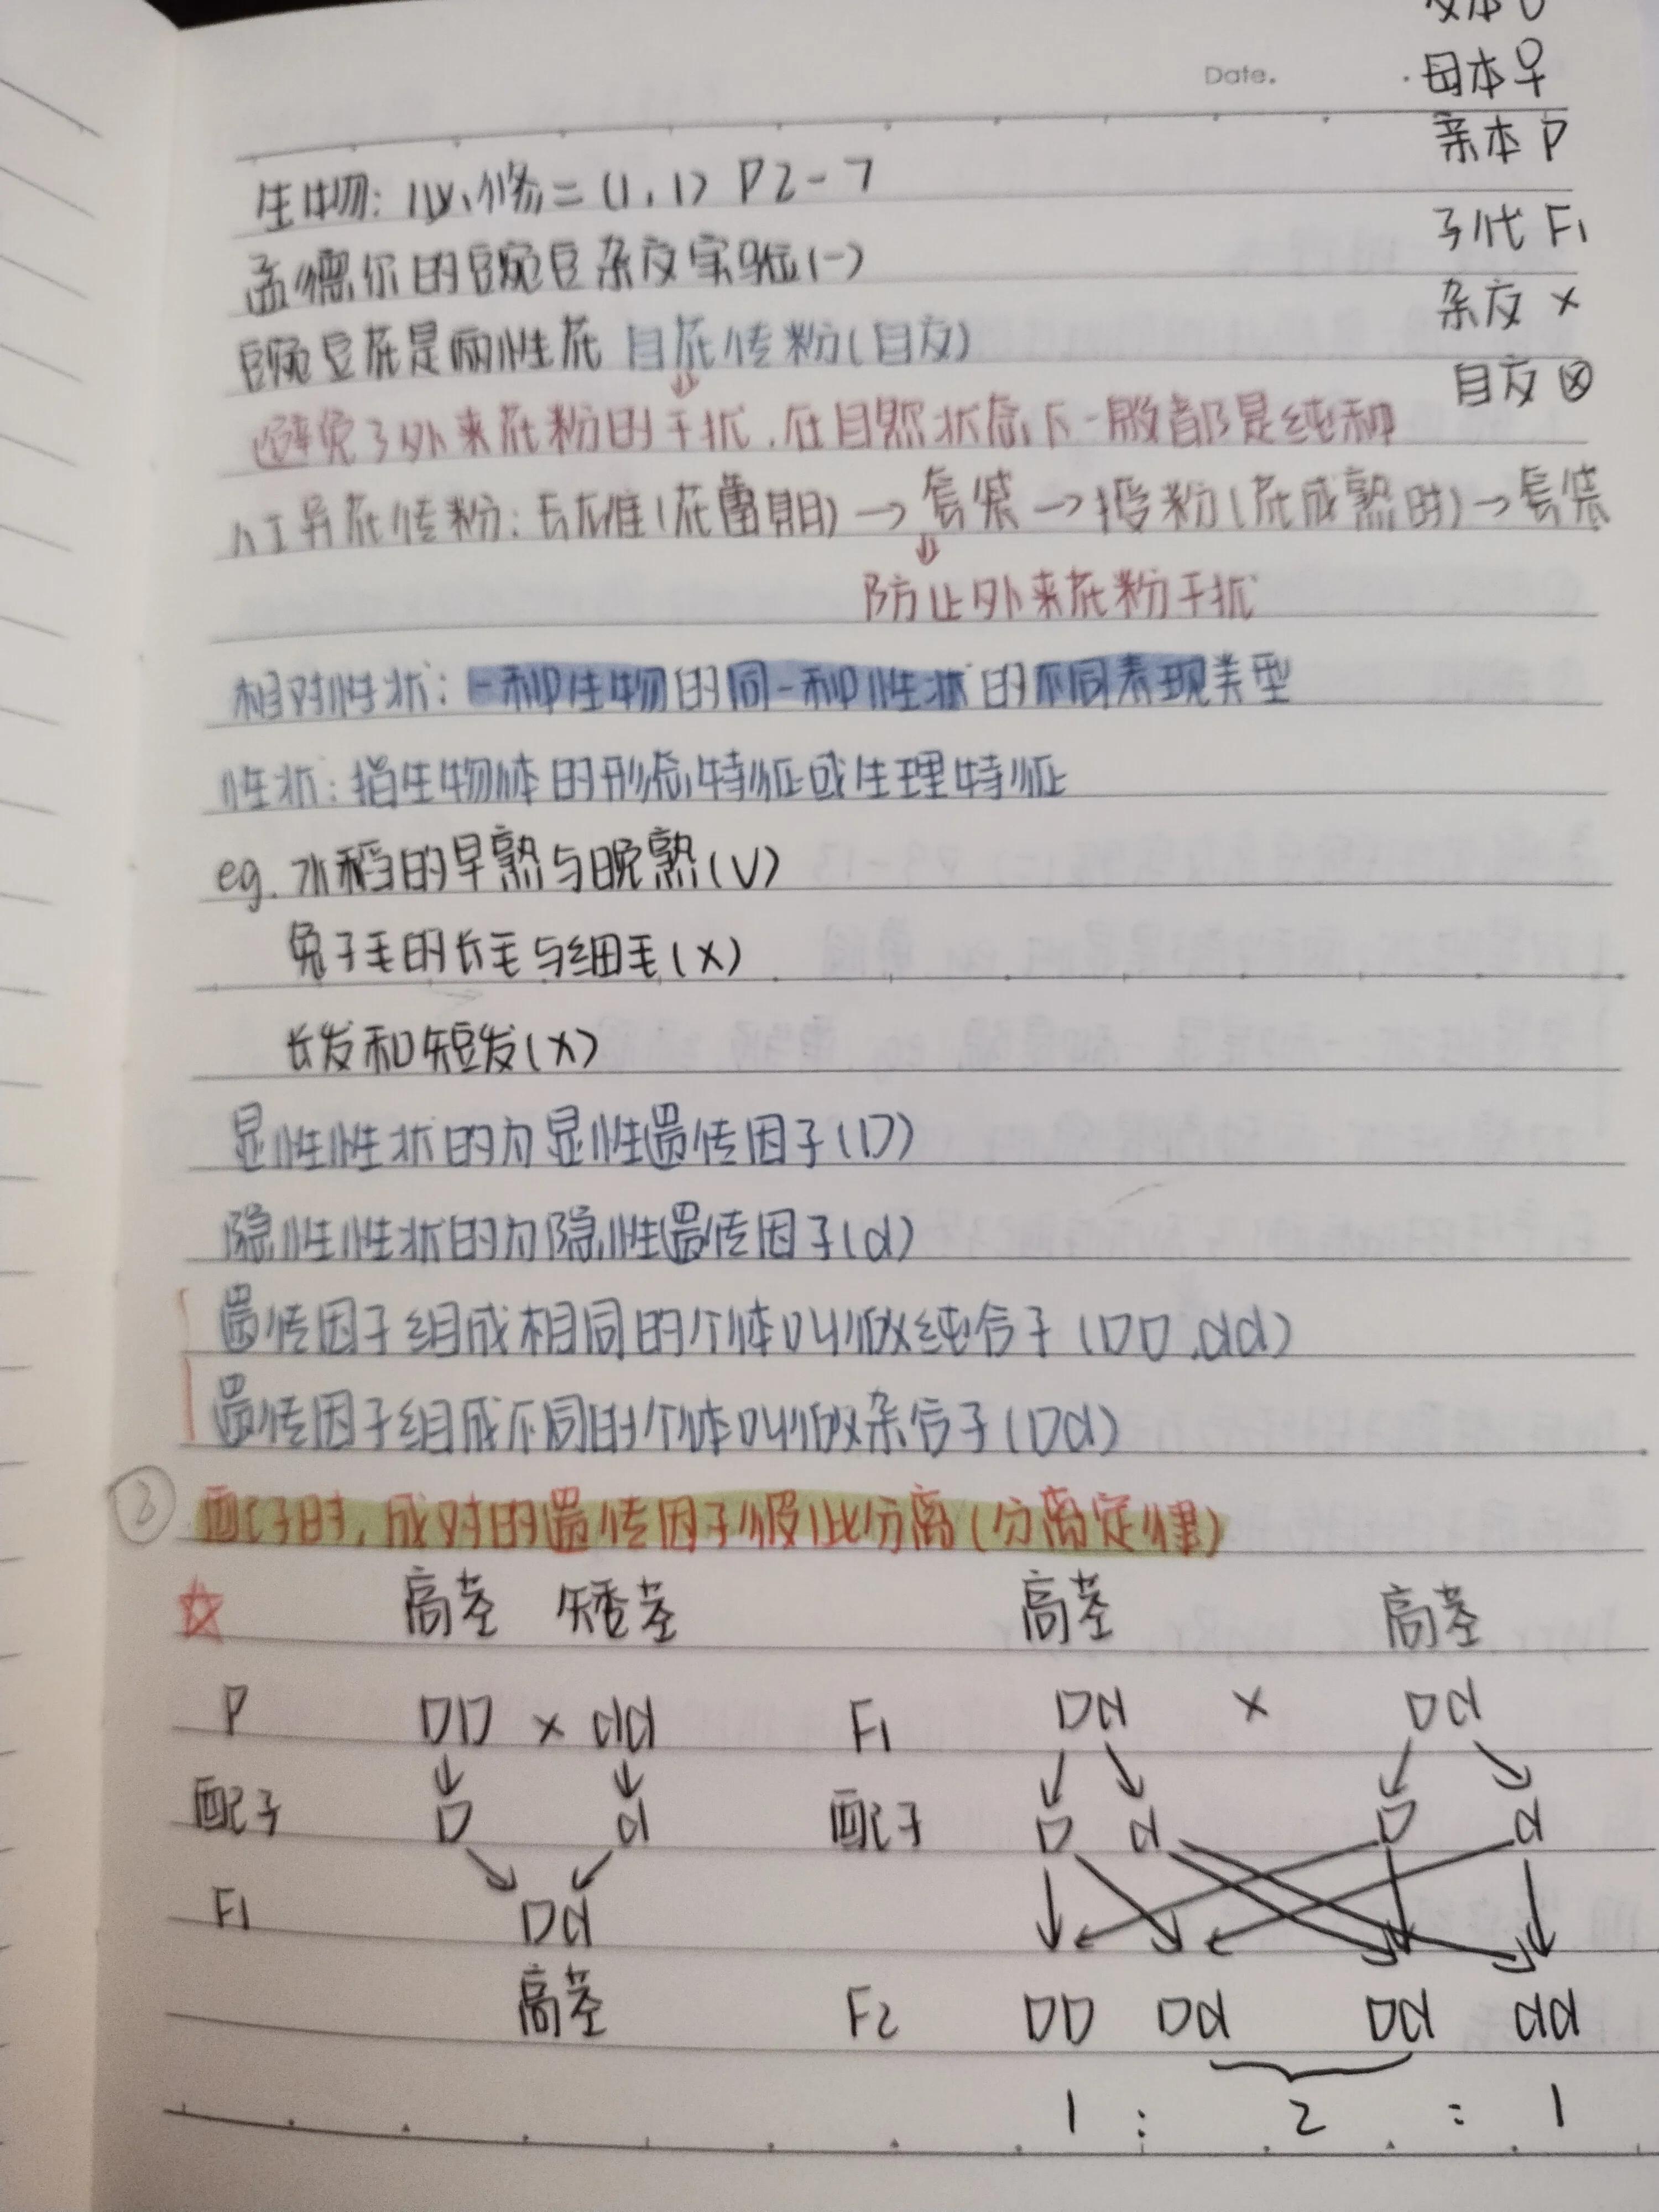 父本
Date.
母本♀
亲本 P
生物: 必修二 (1.1) P2-7
子代 F1
孟德尔的豌豆杂交实验(一)
杂交 ×
豌豆花是两性花 自花传粉(自交)
自交 ⊗
避免了外来花粉的干扰.在自然状态下一般都是纯种
人工异花传粉: 去雄(花蕾期) → 套袋 → 授粉(花成熟时) → 套袋
防止外来花粉干扰
相对性状: 一种生物的同一种性状的不同表现类型
性状: 指生物体的形态特征或生理特征
eg. 水稻的早熟与晚熟(√)
兔子毛的长毛与细毛(×)
长发和短发(×)
显性性状的为显性遗传因子(D)
隐性性状的为隐性遗传因子(d)
遗传因子组成相同的个体叫做纯合子(DD.dd)
遗传因子组成不同的个体叫做杂合子(Dd)
配子时, 成对的遗传因子彼此分离(分离定律)
☆ 高茎 矮茎 高茎 高茎
P DD × dd F1 Dd × Dd
↓ ↓ ↓ ↓ ↓ ↓
配子 D d 配子 D d D d
F1 Dd
高茎 F2 DD Dd Dd dd
1 : 2 : 1